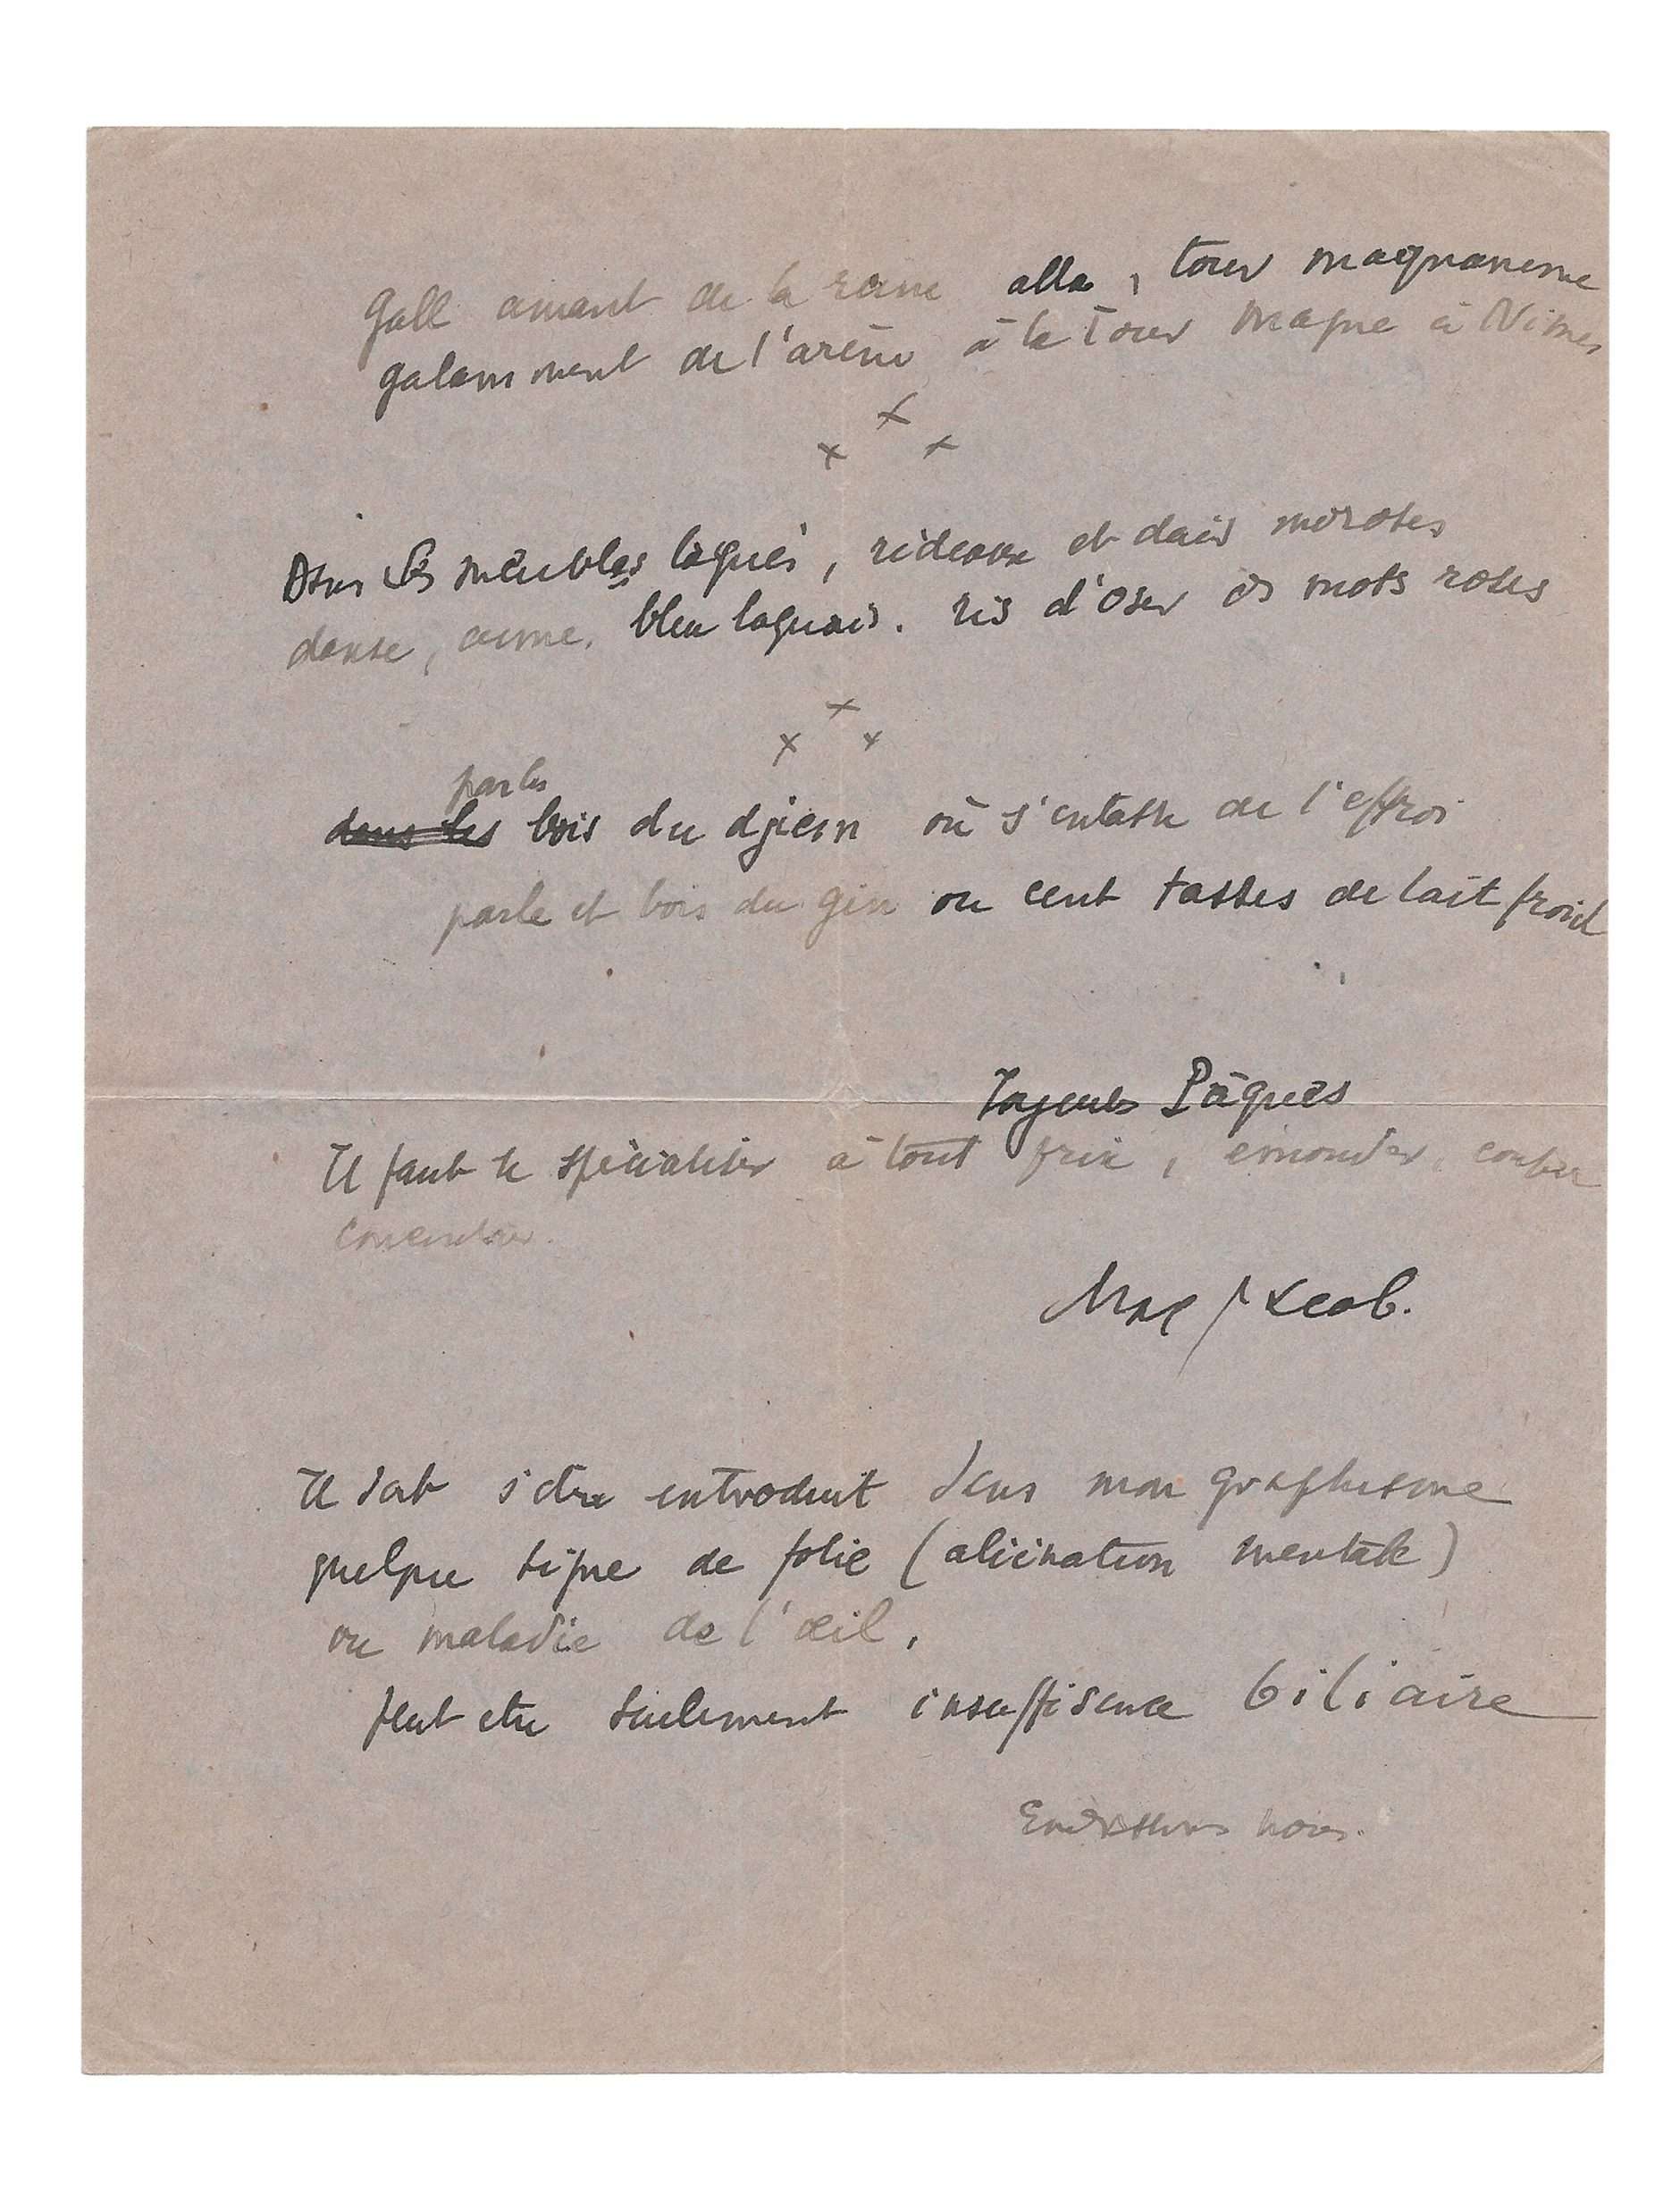 Gall amant de la reine alla, tour magnanime
galamment de l'arène à la Tour magne à Nîmes
x
x x
Dans ces meubles laqués, rideaux et dais moroses
danse, aime, bleu laquais. ris d'oser des mots roses
x
x x
par les
dans les bois du djinn où s'entasse de l'effroi
parle et bois du gin ou cent tasses de lait froid
Joyeuses Pâques
Il faut se spécialiser à tout prix, émonder, couper
Max Jacob.
Il doit s'être introduit dans mon graphisme
quelque signe de folie (aliénation mentale)
ou maladie de l'œil,
peut etre seulement insuffisance biliaire
Embrassons nous.